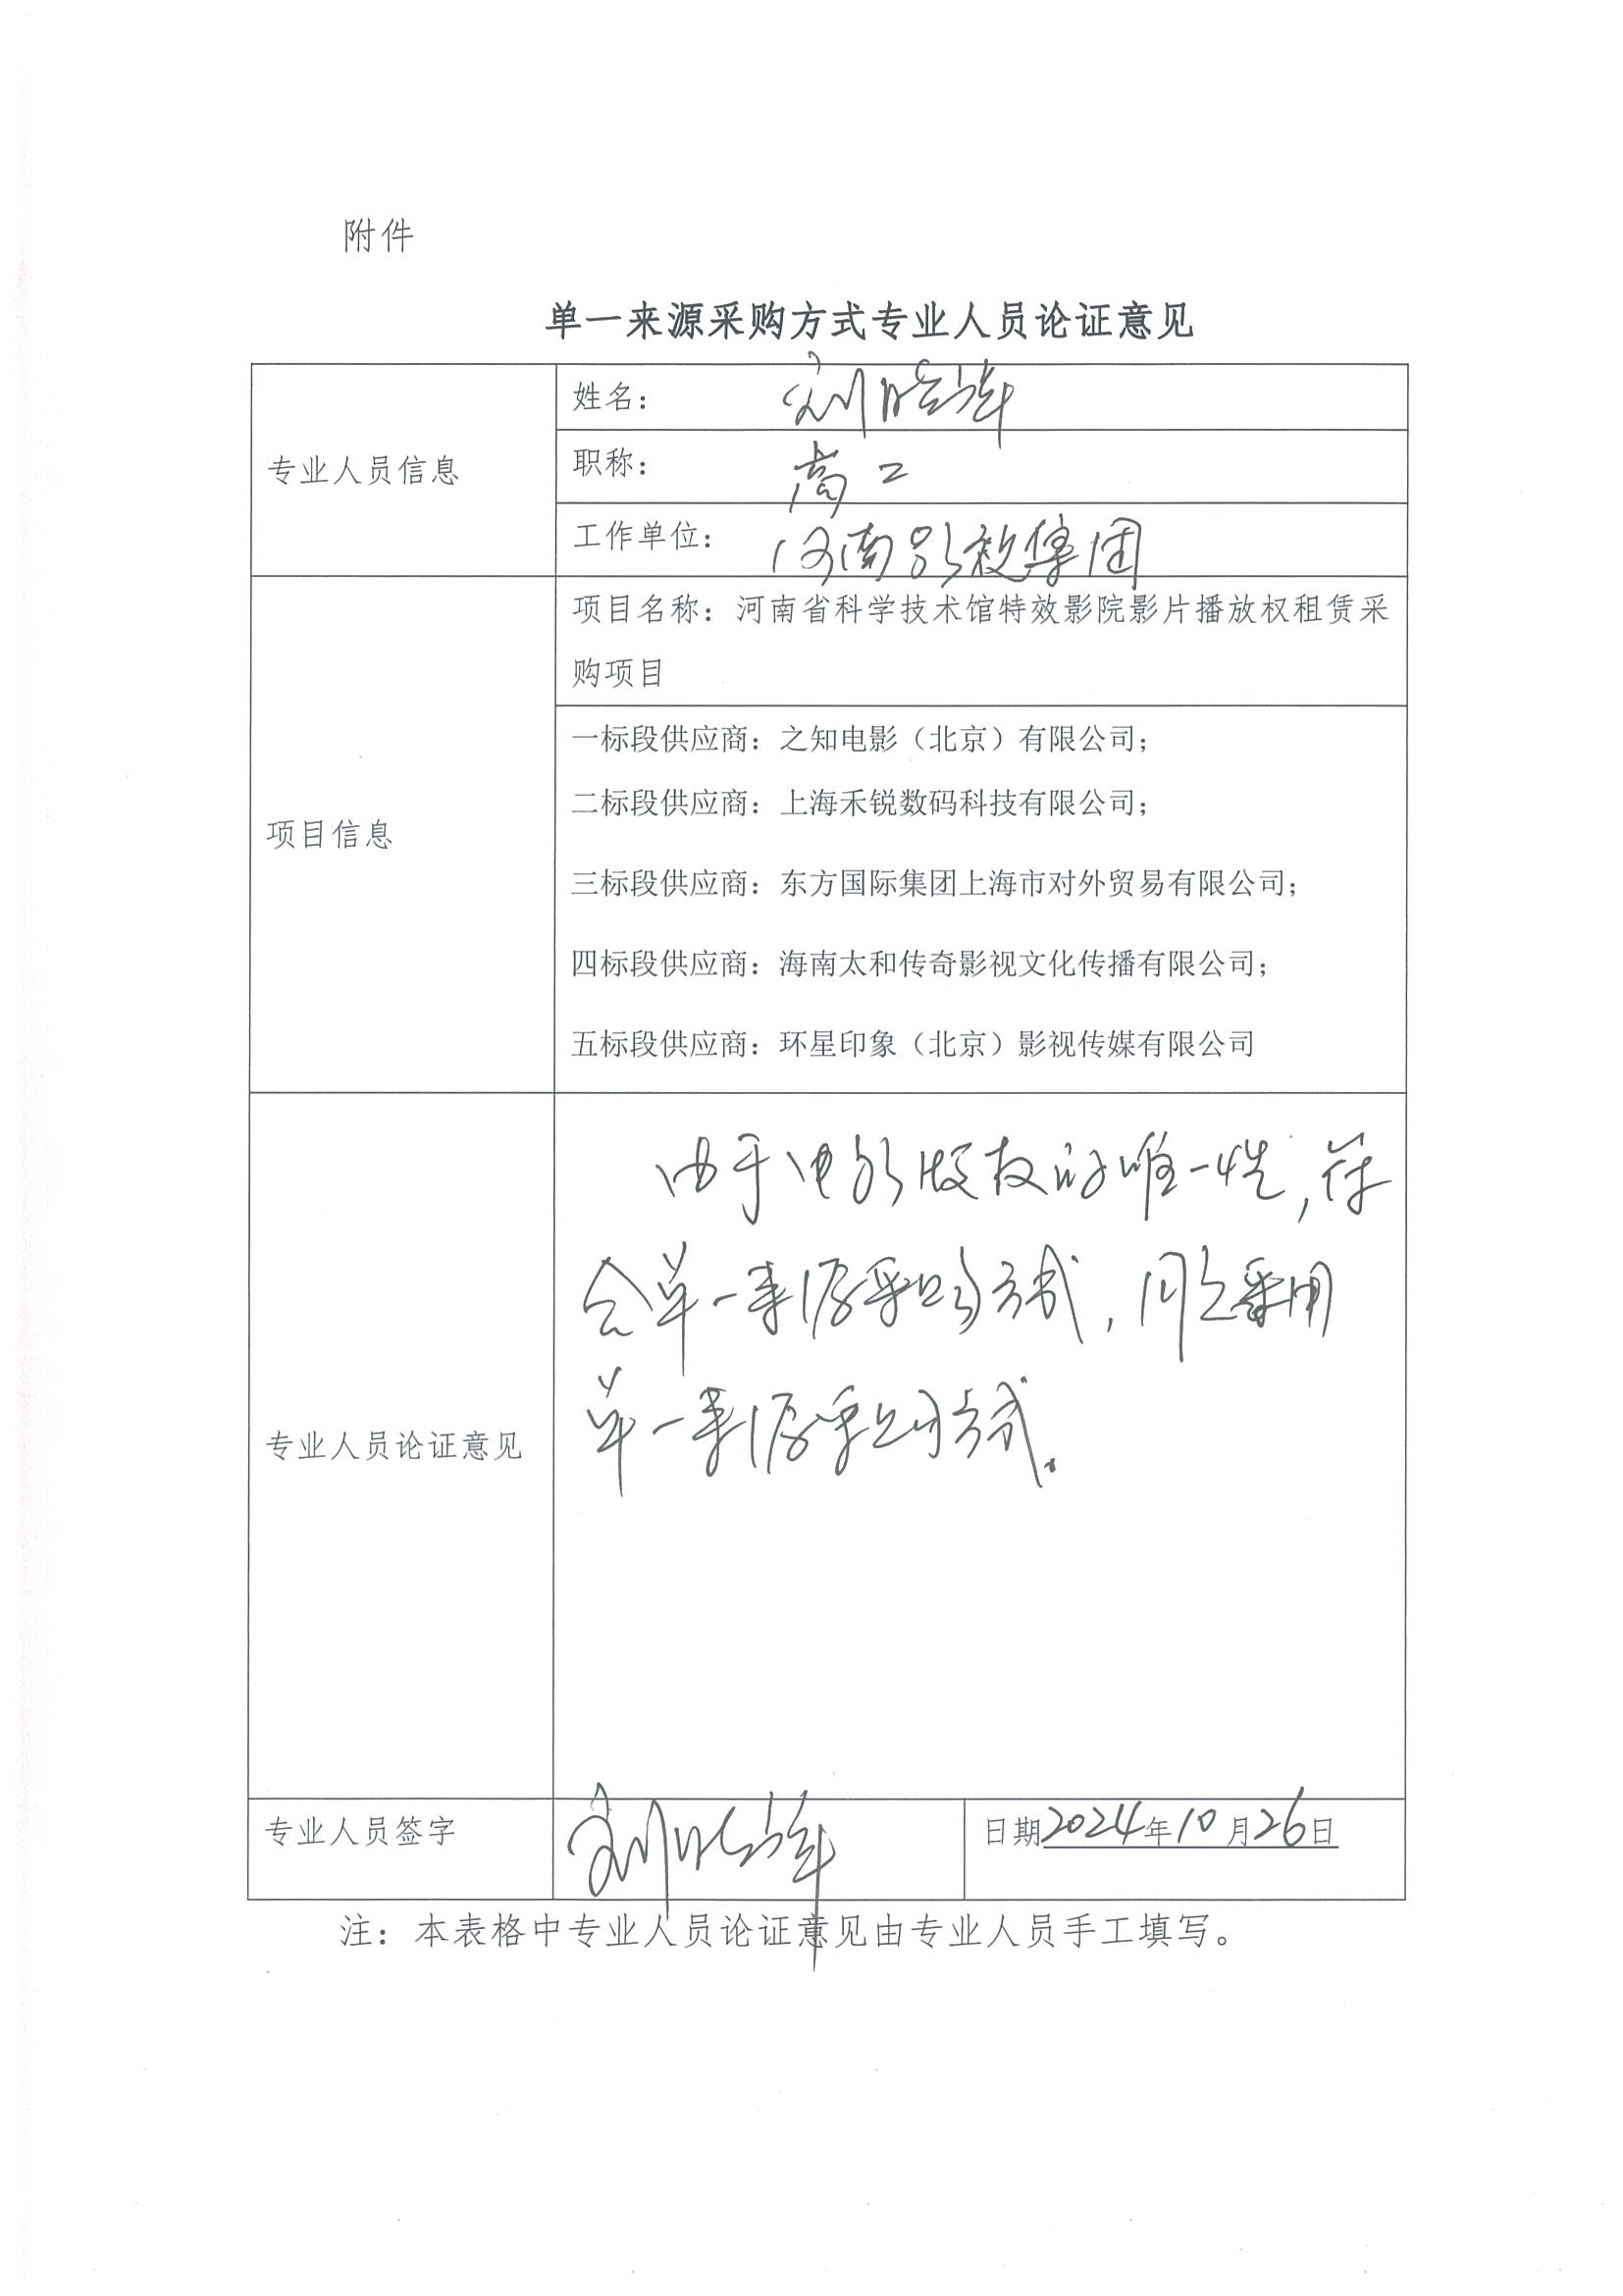 附件
单一来源采购方式专业人员论证意见
专业人员信息
姓名：刘
职称：高工
工作单位：河南影视集团
项目信息
项目名称：河南省科学技术馆特效影院影片播放权租赁采
购项目
一标段供应商：之知电影（北京）有限公司；
二标段供应商：上海禾锐数码科技有限公司；
三标段供应商：东方国际集团上海市对外贸易有限公司；
四标段供应商：海南太和传奇影视文化传播有限公司；
五标段供应商：环星印象（北京）影视传媒有限公司
专业人员论证意见
由于电影版权的唯一性，符
合单一来源采购方式，同意采用
单一来源采购方式。
专业人员签字 刘
日期2024年10月26日
注：本表格中专业人员论证意见由专业人员手工填写。